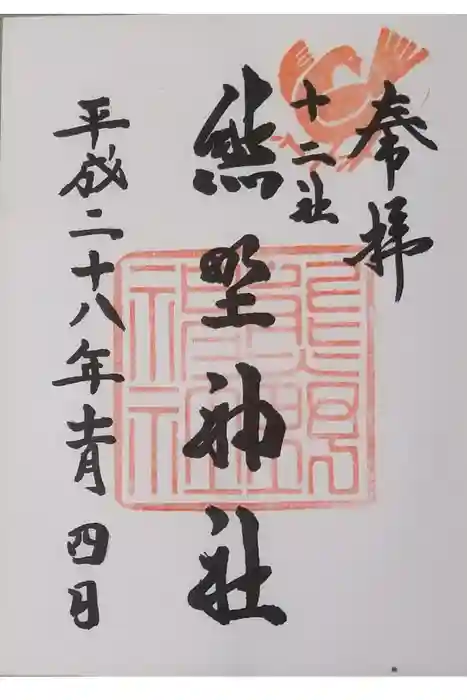 奉拝
十二社
熊野神社
平成二十八年十一月四日
熊野
神社